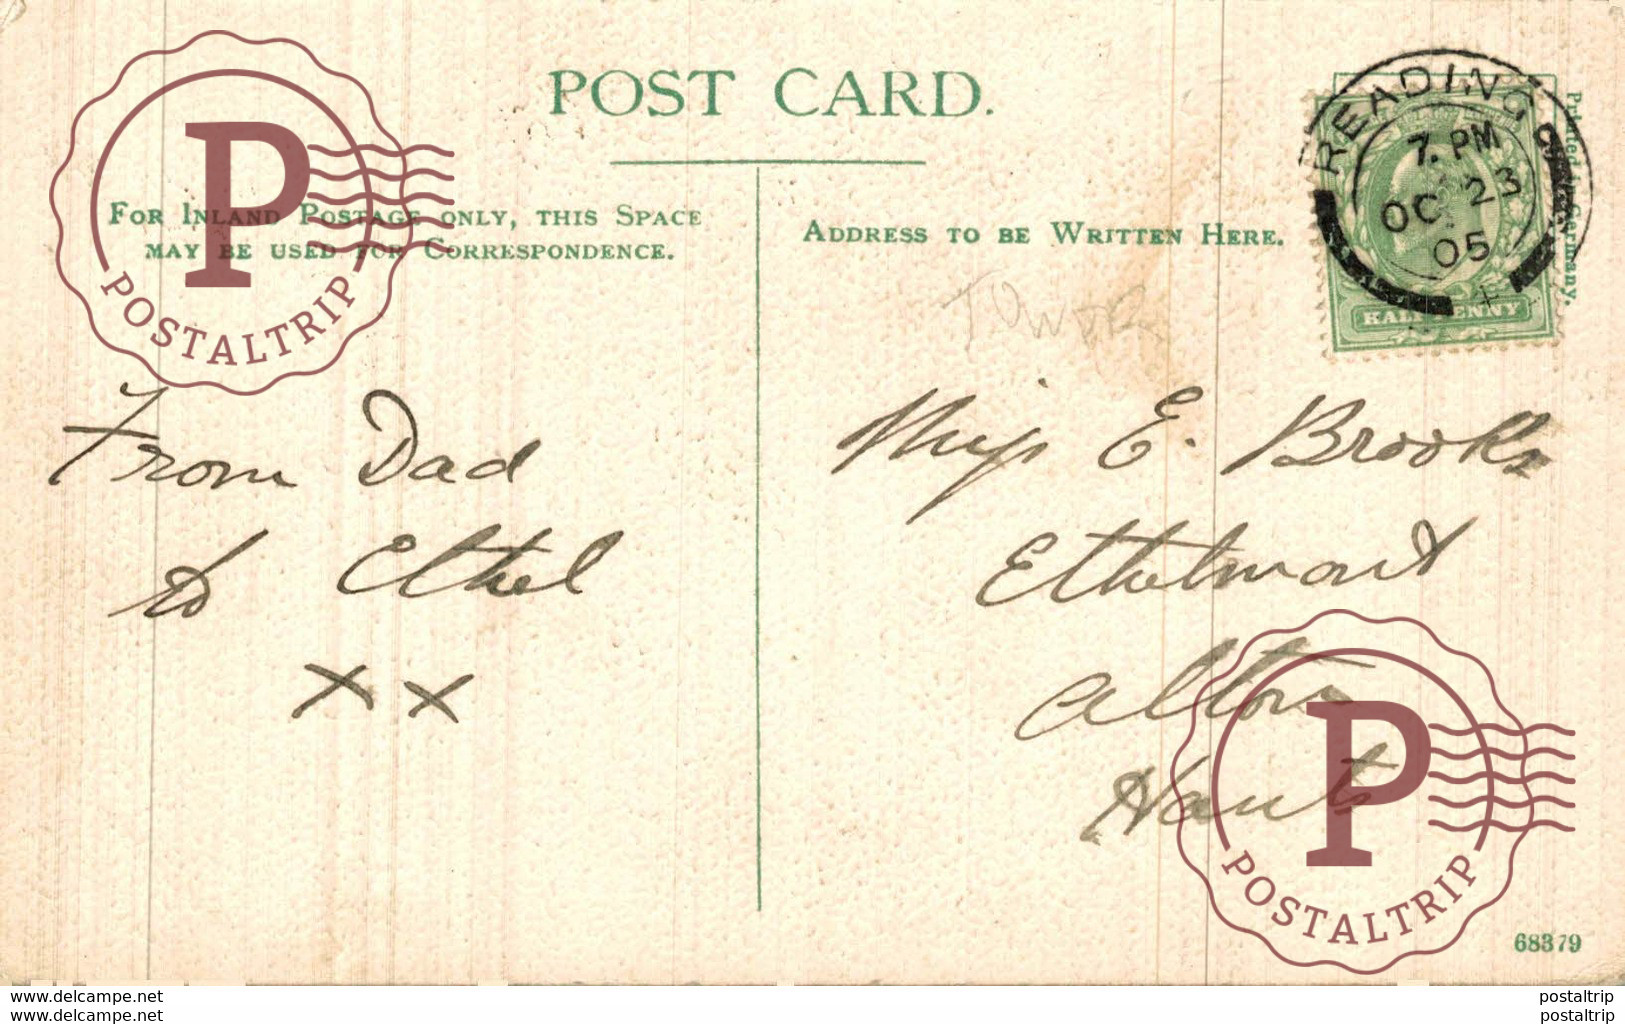 POST CARD.
FOR INLAND POSTAGE ONLY, THIS SPACE
MAY BE USED FOR CORRESPONDENCE.
ADDRESS TO BE WRITTEN HERE.
READING
7. PM
OC 23
05
HALFPENNY
Printed in Germany.
TOWER
From Dad
to Ethel
x x
Miss E. Brooks
Ethelmont
Alton
Hants
68379
P
POSTALTRIP
P
POSTALTRIP
www.delcampe.net
postaltrip
www.delcampe.net
postaltrip